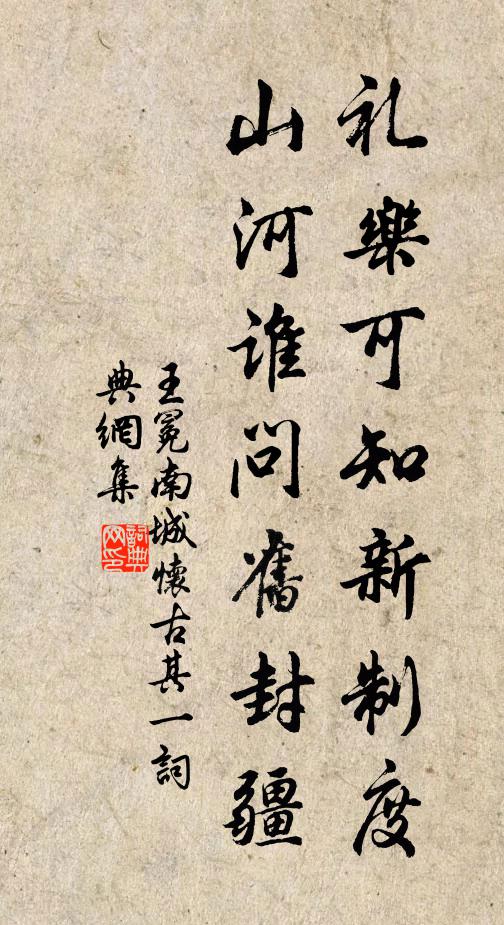 礼樂可知新制度
山河誰問舊封疆
王冕南城懷古其一詞
典網集
詞典
网印